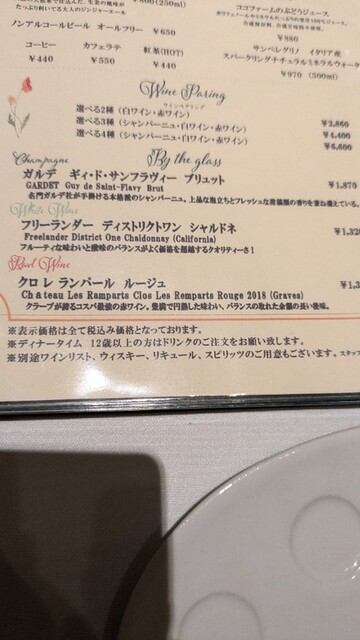 たっぷり利いてる大人のジンジャーエール
ココファームのぶどうジュース
ノンアルコールビール オールフリー ￥650
￥880
コーヒー カフェラテ 紅茶(HOT)
￥440 ￥550 ￥440
サンペレグリノ イタリア産
スパークリングナチュラルミネラルウォーター
￥970 (500ml)
Wine Paring
ワインペアリング
選べる2種 (白ワイン・赤ワイン) ￥2,860
選べる3種 (シャンパーニュ・白ワイン・赤ワイン) ￥4,400
選べる4種 (シャンパーニュ・白ワイン・赤ワイン) ￥6,600
Champagne By the glass
ガルデ ギィ・ド・サンフラヴィー ブリュット ￥1,870
GARDET Guy de Saint-Flavy Brut
名門ガルデ社が手掛ける本格派のシャンパーニュ、上品な泡立ちとフレッシュな柑橘類の香りを兼ね備えている。
White Wine
フリーランダー ディストリクトワン シャルドネ ￥1,320
Freelander District One Chaldonnay (California)
フルーティな味わいと酸味のバランスがよく価格を超越するクオリティーさ！
Red Wine
クロ レ ランパール ルージュ ￥1,3
Château Les Ramparts Clos Les Remparts Rouge 2018 (Graves)
クラーブが誇るコスパ最強の赤ワイン。豊満で円熟した味わい、バランスの取れた余韻の長い後味。
※表示価格は全て税込み価格となっております。
※ディナータイム 12歳以上の方はドリンクのご注文をお願い致します。
※別途ワインリスト、ウィスキー、リキュール、スピリッツのご用意もございます。スタッフ